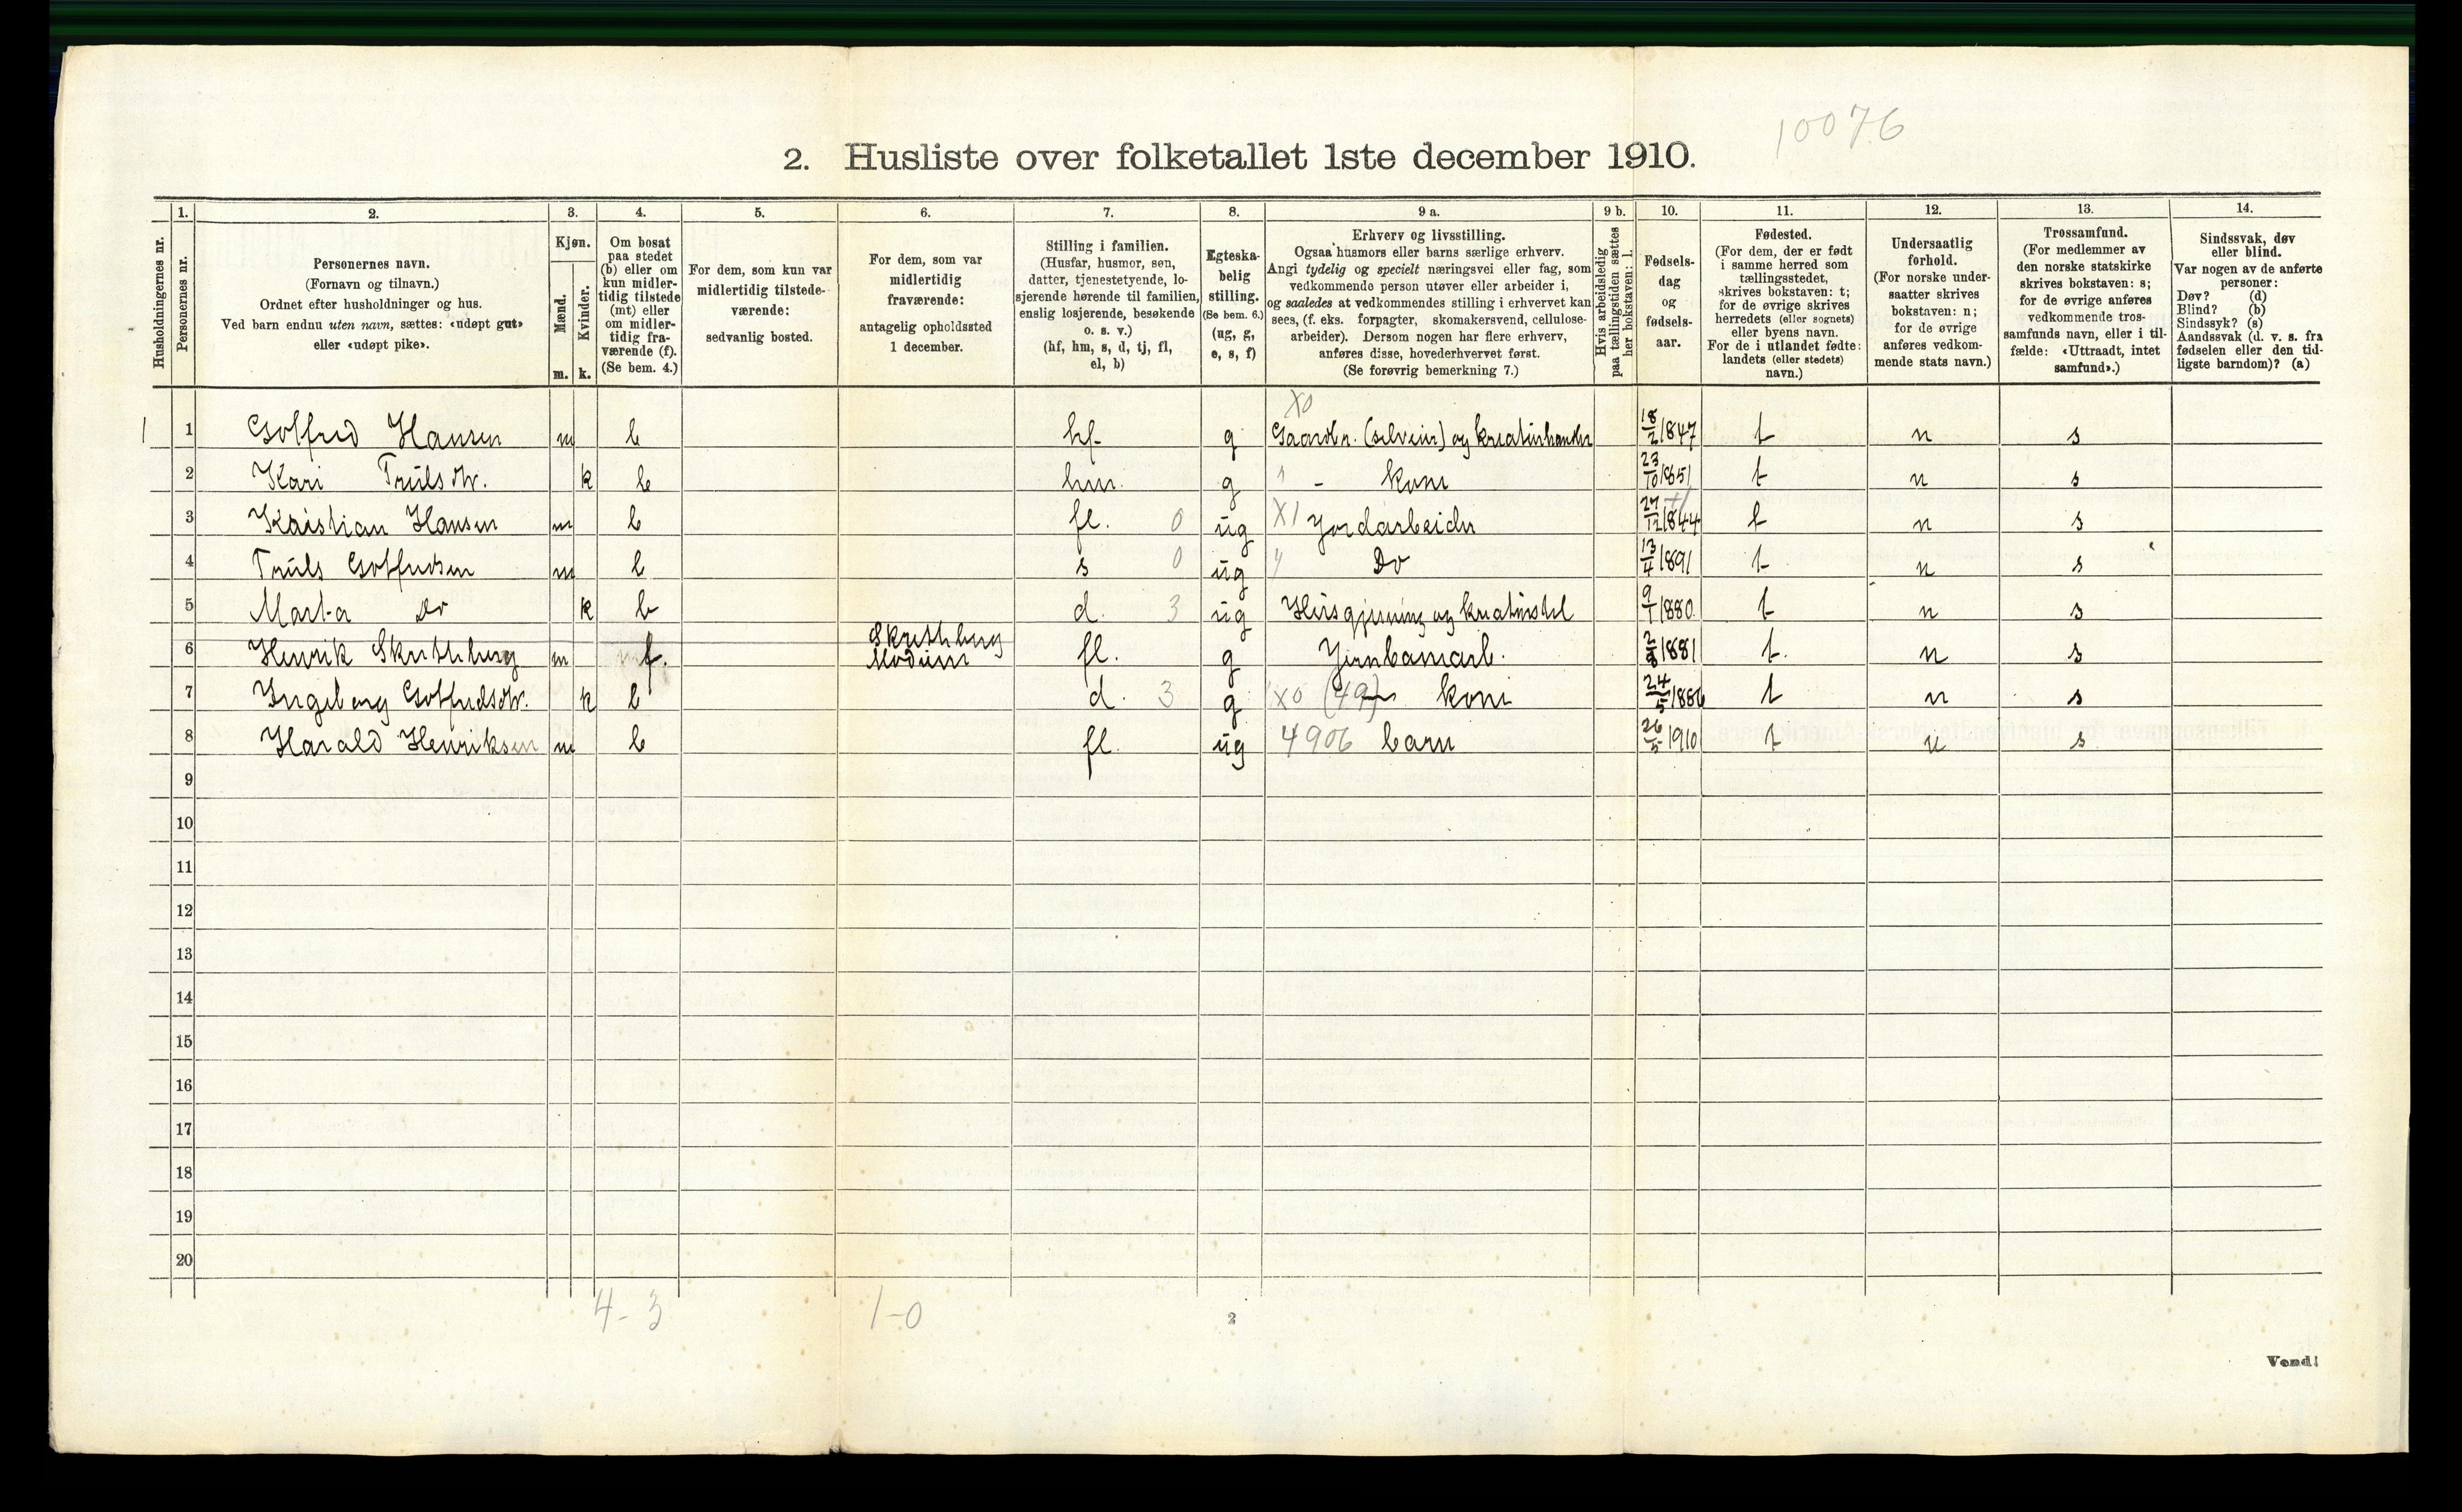 10076
2. Husliste over folketallet 1ste december 1910.
Husholdningernes nr.
1.
Personernes nr.
2.
Personernes navn.
(Fornavn og tilnavn.)
Ordnet efter husholdninger og hus.
Ved barn endnu uten navn, sættes: «udøpt gut»
eller «udøpt pike».
3.
Kjøn.
Mænd.
Kvinder.
m. k.
4.
Om bosat
paa stedet
(b) eller om
kun midler-
tidig tilstede
(mt) eller
om midler-
tidig fra-
værende (f).
(Se bem. 4.)
5.
For dem, som kun var
midlertidig tilstede-
værende:
sedvanlig bosted.
6.
For dem, som var
midlertidig
fraværende:
antagelig opholdssted
1 december.
7.
Stilling i familien.
(Husfar, husmor, søn,
datter, tjenestetyende, lo-
sjerende hørende til familien,
enslig losjerende, besøkende
o. s. v.)
(hf, hm, s, d, tj, fl,
el, b)
8.
Egteska-
belig
stilling.
(Se bem. 6.)
(ug, g,
e, s, f)
9 a.
Erhverv og livsstilling.
Ogsaa husmors eller barns særlige erhverv.
Angi tydelig og specielt næringsvei eller fag, som
vedkommende person utøver eller arbeider i,
og saaledes at vedkommendes stilling i erhvervet kan
sees, (f. eks. forpagter, skomakersvend, cellulose-
arbeider). Dersom nogen har flere erhverv,
anføres disse, hovederhvervet først.
(Se forøvrig bemerkning 7.)
9 b.
Hvis arbeidsledig
paa tællingstiden sættes
her bokstaven: l.
10.
Fødsels-
dag
og
fødsels-
aar.
11.
Fødested.
(For dem, der er født
i samme herred som
tællingsstedet,
skrives bokstaven: t;
for de øvrige skrives
herredets (eller sognets)
eller byens navn.
For de i utlandet fødte:
landets (eller stedets)
navn.)
12.
Undersaatlig
forhold.
(For norske under-
saatter skrives
bokstaven: n;
for de øvrige
anføres vedkom-
mende stats navn.)
13.
Trossamfund.
(For medlemmer av
den norske statskirke
skrives bokstaven: s;
for de øvrige anføres
vedkommende tros-
samfunds navn, eller i til-
fælde: «Uttraadt, intet
samfund».)
14.
Sindssvak, døv
eller blind.
Var nogen av de anførte
personer:
Døv? (d)
Blind? (b)
Sindssyk? (s)
Aandssvak (d. v. s. fra
fødselen eller den tid-
ligste barndom)? (a)
X0
1 1 Gotfred Hansen m b hf. g Gaardbr. (selveier) og kreaturhandler 18/2 1847 t n s
2 Kari Trulsdtr. k b hm. g " - kone 23/10 1851 t n s
3 Kristian Hansen m b fl. 0 ug X1 Jordarbeider 27/12 1844 t n s
4 Truls Gotfredsen m b s 0 ug " Do 13/4 1891 t n s
5 Marta Do k b d. 3 ug Husgjerning og kreaturstel 9/1 1880. t n s
6 Henrik Skretteberg m f. Skretteberg Modum fl. g Jernbanearb. 2/8 1881 t. n s
7 Ingeborg Gotfredsdtr. k b d. 3 g X0 (49) kone 24/5 1886 t n s
8 Harald Henriksen m b fl. ug 4906 barn 26/5 1910 t n s
9
10
11
12
13
14
15
16
17
18
19
20
4-3 1-0
2
Vend!